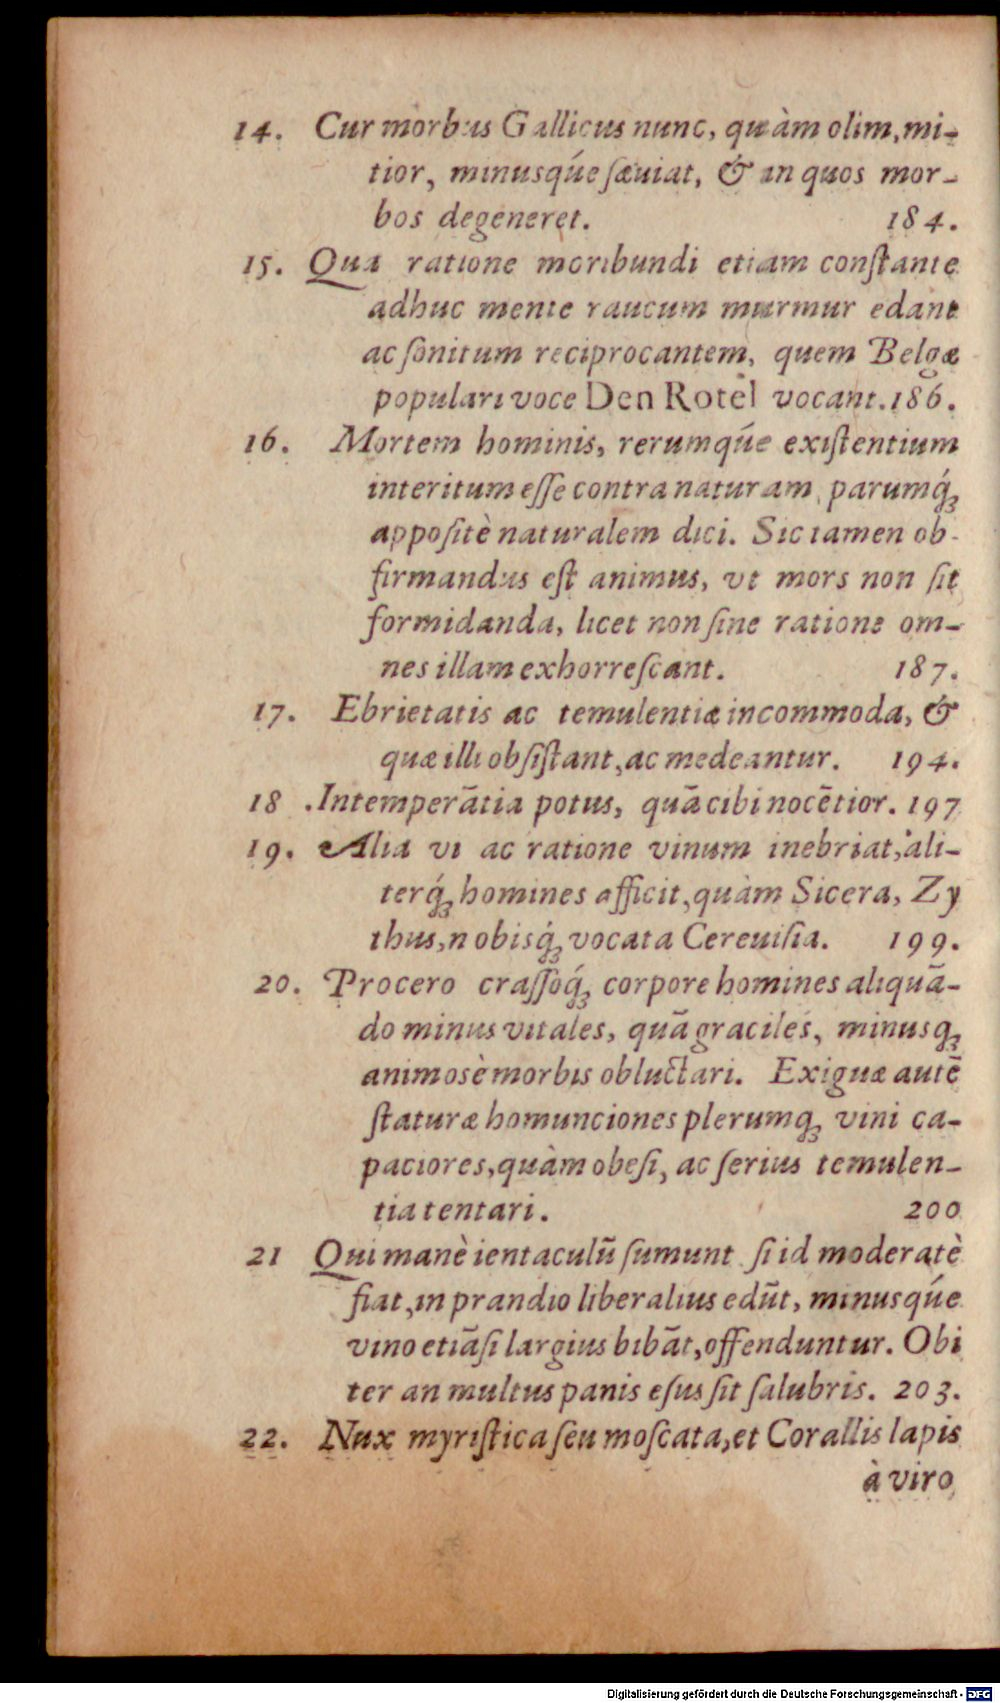 14. Cur morbus Gallicus nunc, quàm olim, mi-
tior, minusq́ue sæuiat, & in quos mor-
bos degeneret. 184.
15. Qua ratione moribundi etiam constante
adhuc mente raucum murmur edant
ac sonitum reciprocantem, quem Belgæ
populari voce Den Rotel vocant. 186.
16. Mortem hominis, rerumq́ue existentium
interitum esse contra naturam, parumq́;
appositè naturalem dici. Sic tamen ob-
firmandus est animus, vt mors non sit
formidanda, licet non sine ratione om-
nes illam exhorrescant. 187.
17. Ebrietatis ac temulentiæ incommoda, &
quæ illi obsistant, ac medeantur. 194.
18 .Intemperãtia potus, quã cibi nocẽtior. 197
19. Alia vi ac ratione vinum inebriat, ali-
terq́; homines afficit, quàm Sicera, Zy
thus, nobisq́; vocata Cereuisia. 199.
20. Procero crassoq́; corpore homines aliquã-
do minus vitales, quã graciles, minusq;
animosè morbis obluctari. Exiguæ autẽ
staturæ homunciones plerumq; vini ca-
paciores, quàm obesi, ac serius temulen-
tia tentari. 200
21 Qui manè ientaculũ sumunt si id moderatè
fiat, in prandio liberalius edũt, minusq́ue
vino etiãsi largius bibãt, offenduntur. Obi
ter an multus panis esus sit salubris. 203.
22. Nux myristica seu moscata, et Corallis lapis
à viro
Digitalisierung gefördert durch die Deutsche Forschungsgemeinschaft - DFG